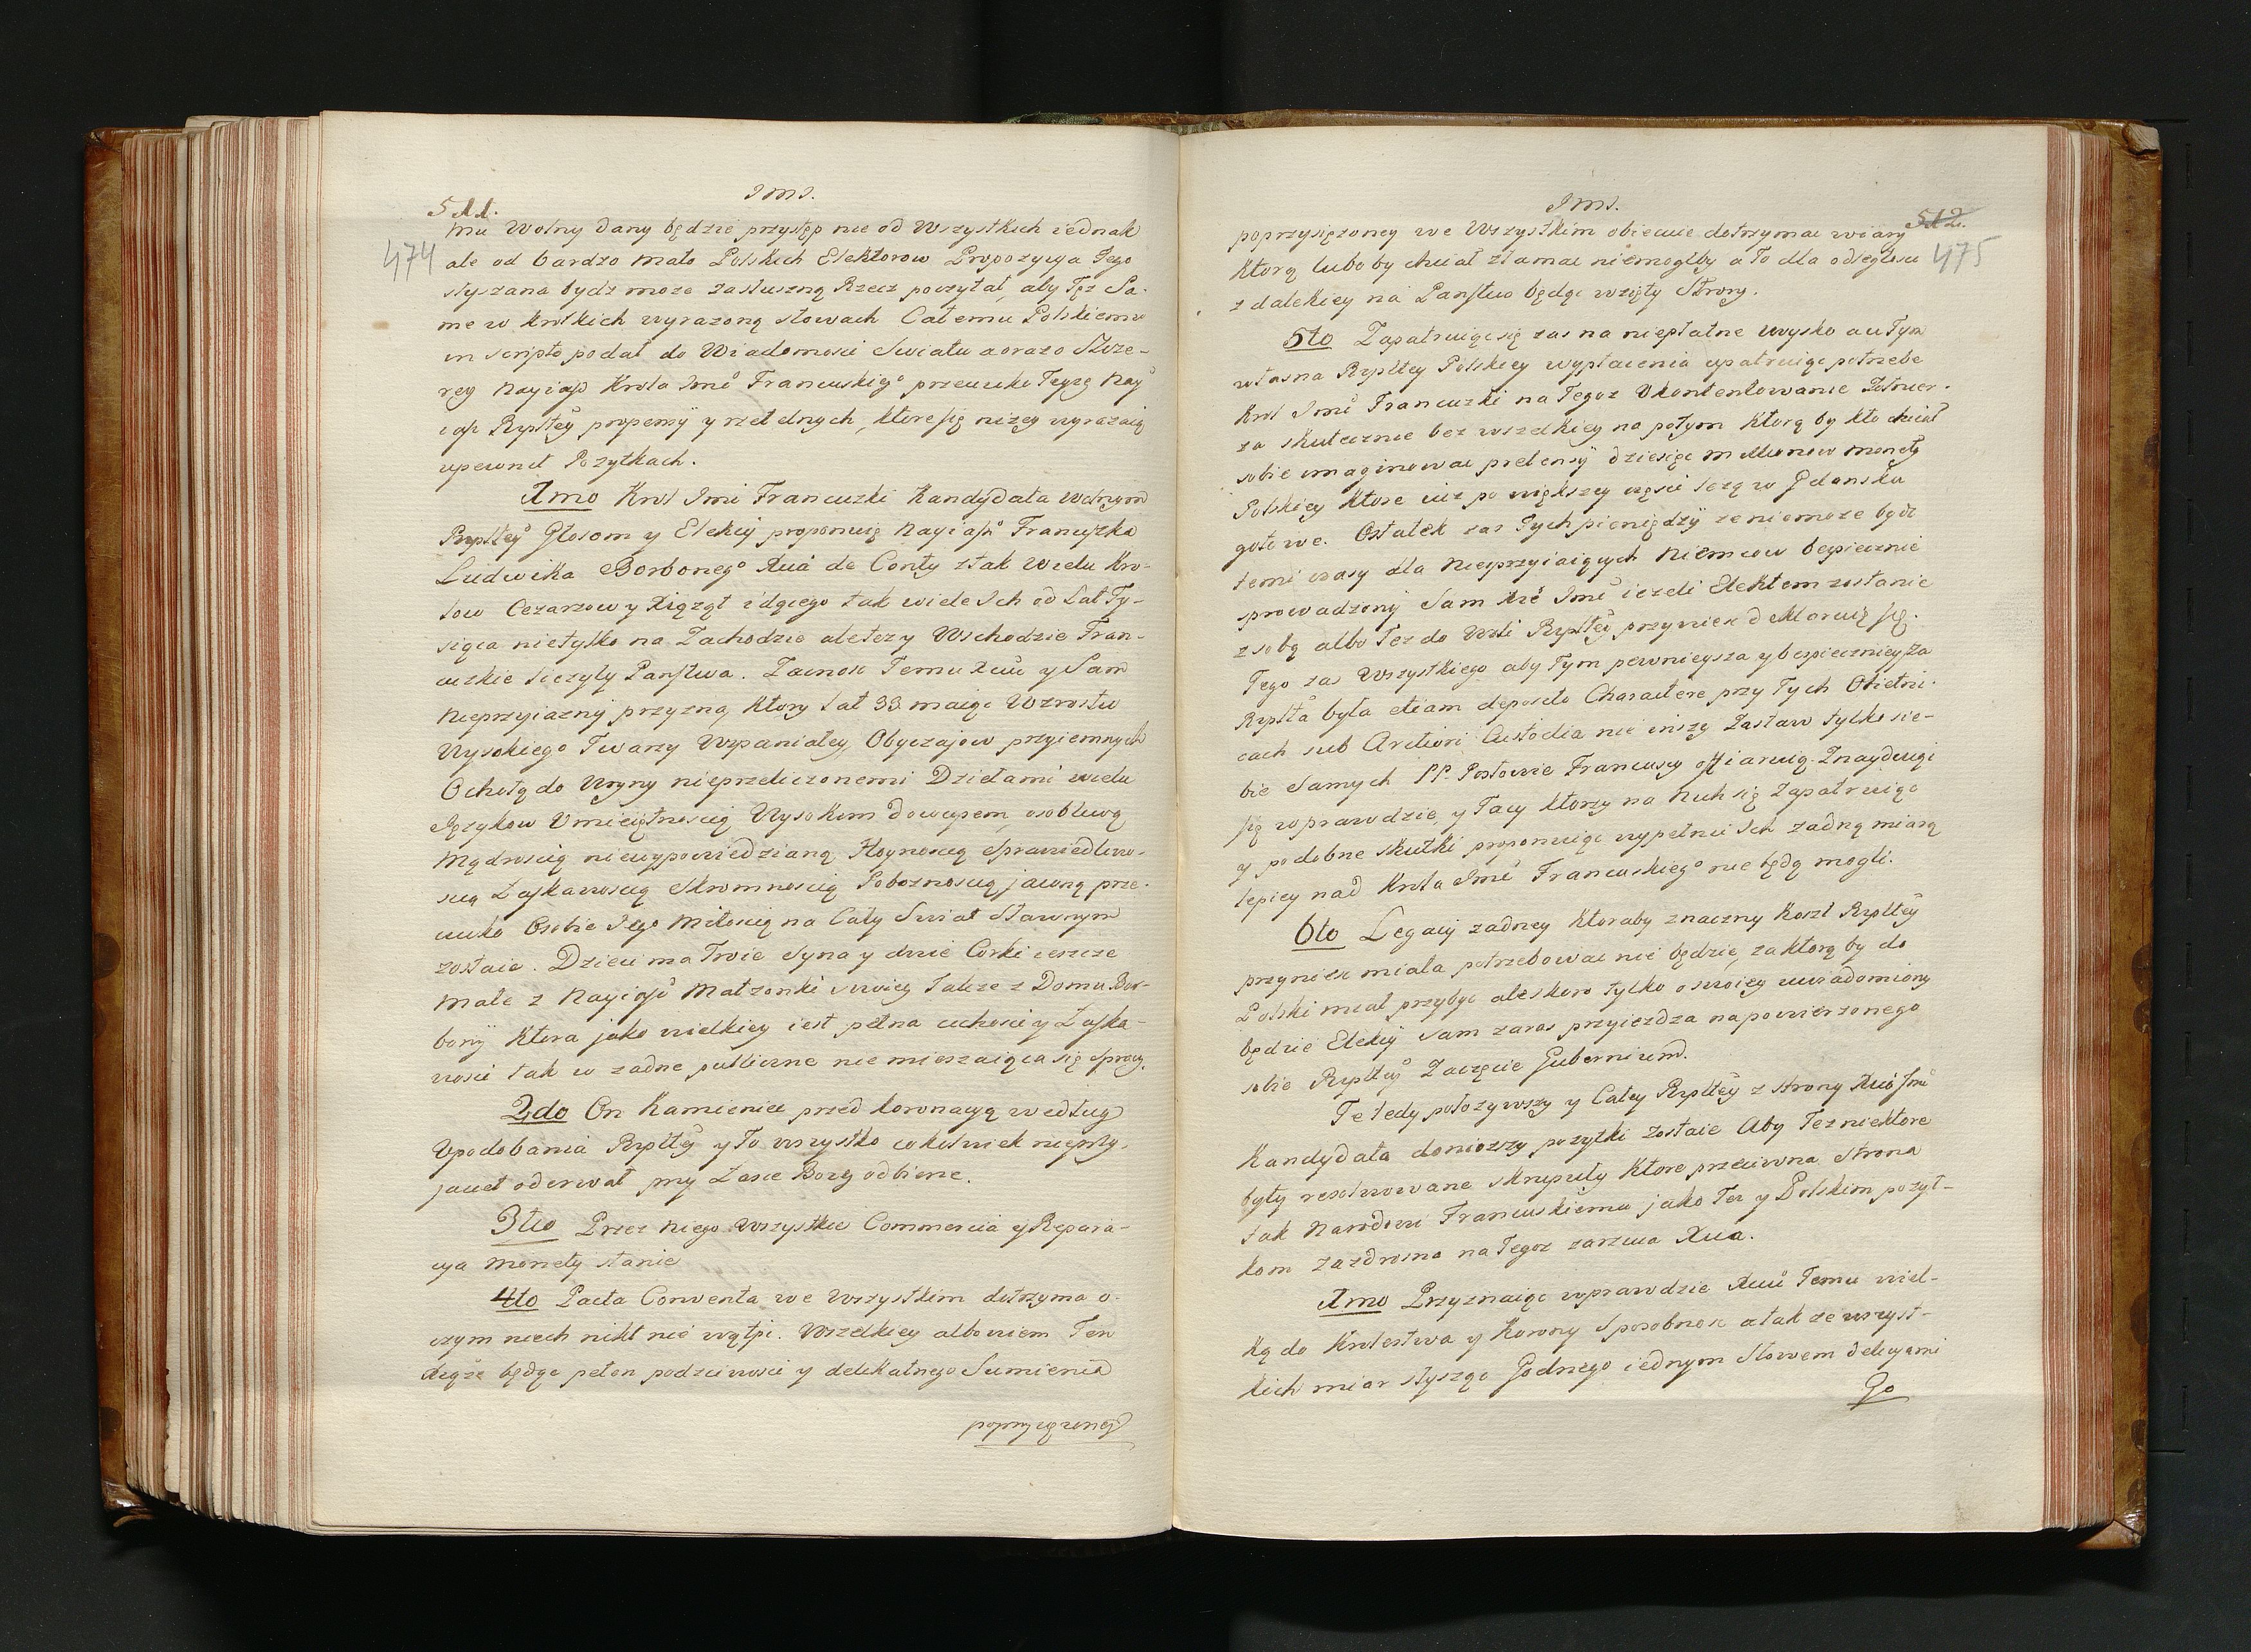 511.
474
mu Wolny dany będzie przystęp nie od Wszystkich iednak
ale od bardzo mało Polskich Elektorow Propozycya Tego
słyszana bydz moze zasłuszną Rzecz poczytał, aby Tęz Sa-
me w krotkich wyrazoną słowach Całemu Polskiemu
in scripto podał do Wiadomosci Swiatu a oraz o Szcze-
rey Krola Jmći Francuskigo przeciwko Teyze Nayi
Rpltey y rzetelnych, ktore się nizey wyrazaią
upewnił Pozytkach.
1mo Krol Jmći Francuzki Kandydata wolnym
Rpltey Głosom y Elekcij proponuię Nayiaśń Franciszka
Ludwika Borbonego Xcia de Conty z tak wielu Kro-
low Cezarzow y Xiąząt idącego tak wiele Ich od Lat Ty-
siąca nietylko na Zachodzie ale tez y Wschodzie Fran-
cuzkie liczyły Państwa. Zacnosc Temu Xciu y Sam
Nieprzyiazny przyzna, ktory Lat 33 maiąc Wzrostu
Wysokiego Twarzy Wspaniałey, Obyczajow przyiemnych
Ochotą do Woyny nieprzeliczonemi Dziełami wielu
Ięzykow Umieiętnoscią Wysokim dowcipem, osobliwą
Mądroscią niewypowiedzianą Hoynoscią Sprawiedliwo-
scią Łaskawoscią Skromnoscią Poboznoscią jawną prze-
ciwko Osobie Jego Miłoscią na Cały Swiat Sławnym
zostaie. Dzieci ma Troie Syna y dwie Corki ieszcze
małe z Nayiaśń Małzonki swoiey Takze z Domu Bor-
bonij Ktora jako wielkiey iest pełna cichosci y Łaska-
wosci tak w zadne publiczne nie mieszaiąca się sprawy.
2do On Kamieniec przed koronacyą według
Upodobania Rpltey y To wszystko cokolwiek niepszy-
jaciel oderwał przy Łasce Bozey odbierze.
3tio Przez Niego Wszystkie Commercia y Repara-
cya Monety stanie
4to Pacta Conventa we wszystkim dotrzyma o-
czym niech nikt nie wątpi. Wszelkiey albowiem Ten
Xiąze będąc pełen podzciwosci y delikatnego Sumienia
poprzysięzoney
512.
475
poprzysięzoney we Wszystkim obiecuie dotrzymac wiary
Ktorą luboby chciał złamac niemogłby a To dla odległosci
z dalekiey na Państwo będąc wzięty Strony.
5to Zapatruiąc się zas na niepłatne woysko a u Tym
własna Rpltey Polskiey wypłacenia upatruiąc potrzebe
Krol Jmć Francuzki na Tegoz Ukontentowanie Zołnier-
za skutecznie bez wszelkiey na potym Ktorą by kto chciał
sobie imaginowac pretensij dziesięc Millionow Monety
Polskiey Ktore iuz po większey częsci lezą w Gdansku
gotowe. Ostatek zas Tych pieniędzy ze niemoze bydz
temi czasy dla Nieprzyiaiących Niemcow bespiecznie
sprowadzony Sam Xze Jmć iezeli Elektem zostanie
z sobą albo Tez do Wsli Rpltey przyniesc deklaruię się.
Tego zas Wszystkiego aby Tym pewnieysza y bespiecznieysza
Rplta była etiam deposito Charactere przy Tych Obietni-
cach sub Arctiori Custodia nie inszę Zastaw tylko sie-
bie Samych PP. Posłowie Francuscy offiaruią. Znayduią
się wprawdzie y Tacy ktorzy na Nich się Zapatruiąc
y podobne skutki proponuiąc wypełnic Ich zadną miarą
lepiey nad Krola Jmć Francuskiego nie będą mogli.
6to Legacij zadney Ktoraby znaczny koszt Rpltey
przyniesc miała potrzebowac nie będzie, za ktorą by do
Polski miał przybyc ale skoro tylko o swoiey uwiadomiony
będzie Elekcij Sam zaraz przyiezdza na powierzonego
sobie Rpltey Zaczęcie Gubernium.
Te tedy połozywszy y Całey Rpltey z strony Xcia Jmć
Kandydata doniozszy pozytki zostaie Aby Tez niektore
były resolwowane skrupuły Ktore przeciwna Strona
tak Narodowi Francuskiemu jako Tez y Polskim pozyt-
kom zazdrosna na Tegoz zarzuca Xcia.
1mo Przyznaiąc wprawdzie Xciu Temu wiel-
ką do Krolestwa y Korony Sposobnosc a tak ze wszyst-
kich miar słysząc Godnego iednym Słowem
Go